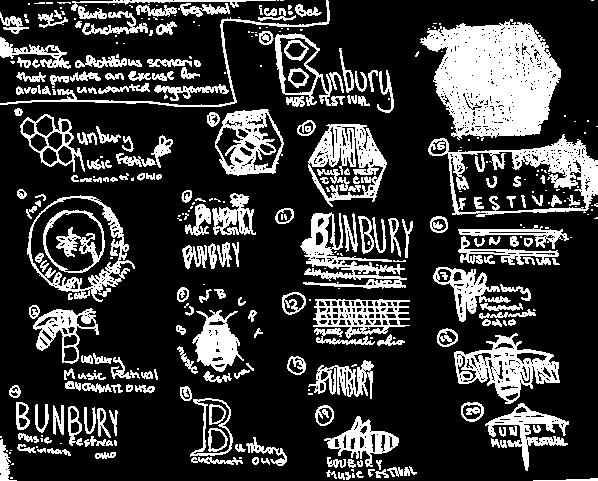 logo: text: "Bunbury Music Festival"
"Cincinnati, OH"
icon: Bee
Bunbury
"to create a fictitious scenario
that provides an excuse for
avoiding unwanted engagements
Bunbury
MUSIC FESTIVAL
Bunbury
Music Festival
Cincinnati, Ohio
10
BUNBURY
MUSIC FEST
IVAL CINC
INNATI
15
BUNBURY
MUS
FESTIVAL
BUNBURY MUSIC FESTIVAL
BUNBURY
MUSIC FESTIVAL
BUNBURY
11
BUNBURY
music festival
cincinnati
OHIO
16
BUNBURY
MUSIC FESTIVAL
17
Bunbury
Music
Festival
Cincinnati
OHIO
Bunbury
Music Festival
CINCINNATI OHIO
BUNBURY
music festival
12
BUNBURY
music festival
cincinnati ohio
13
BUNBURY
BUNBURY
BUNBURY
Music Festival
Cincinnati OHIO
Bunbury
Cincinnati OHIO
19
BUNBURY
MUSIC FESTIVAL
20
BUNBURY
MUSIC FESTIVAL